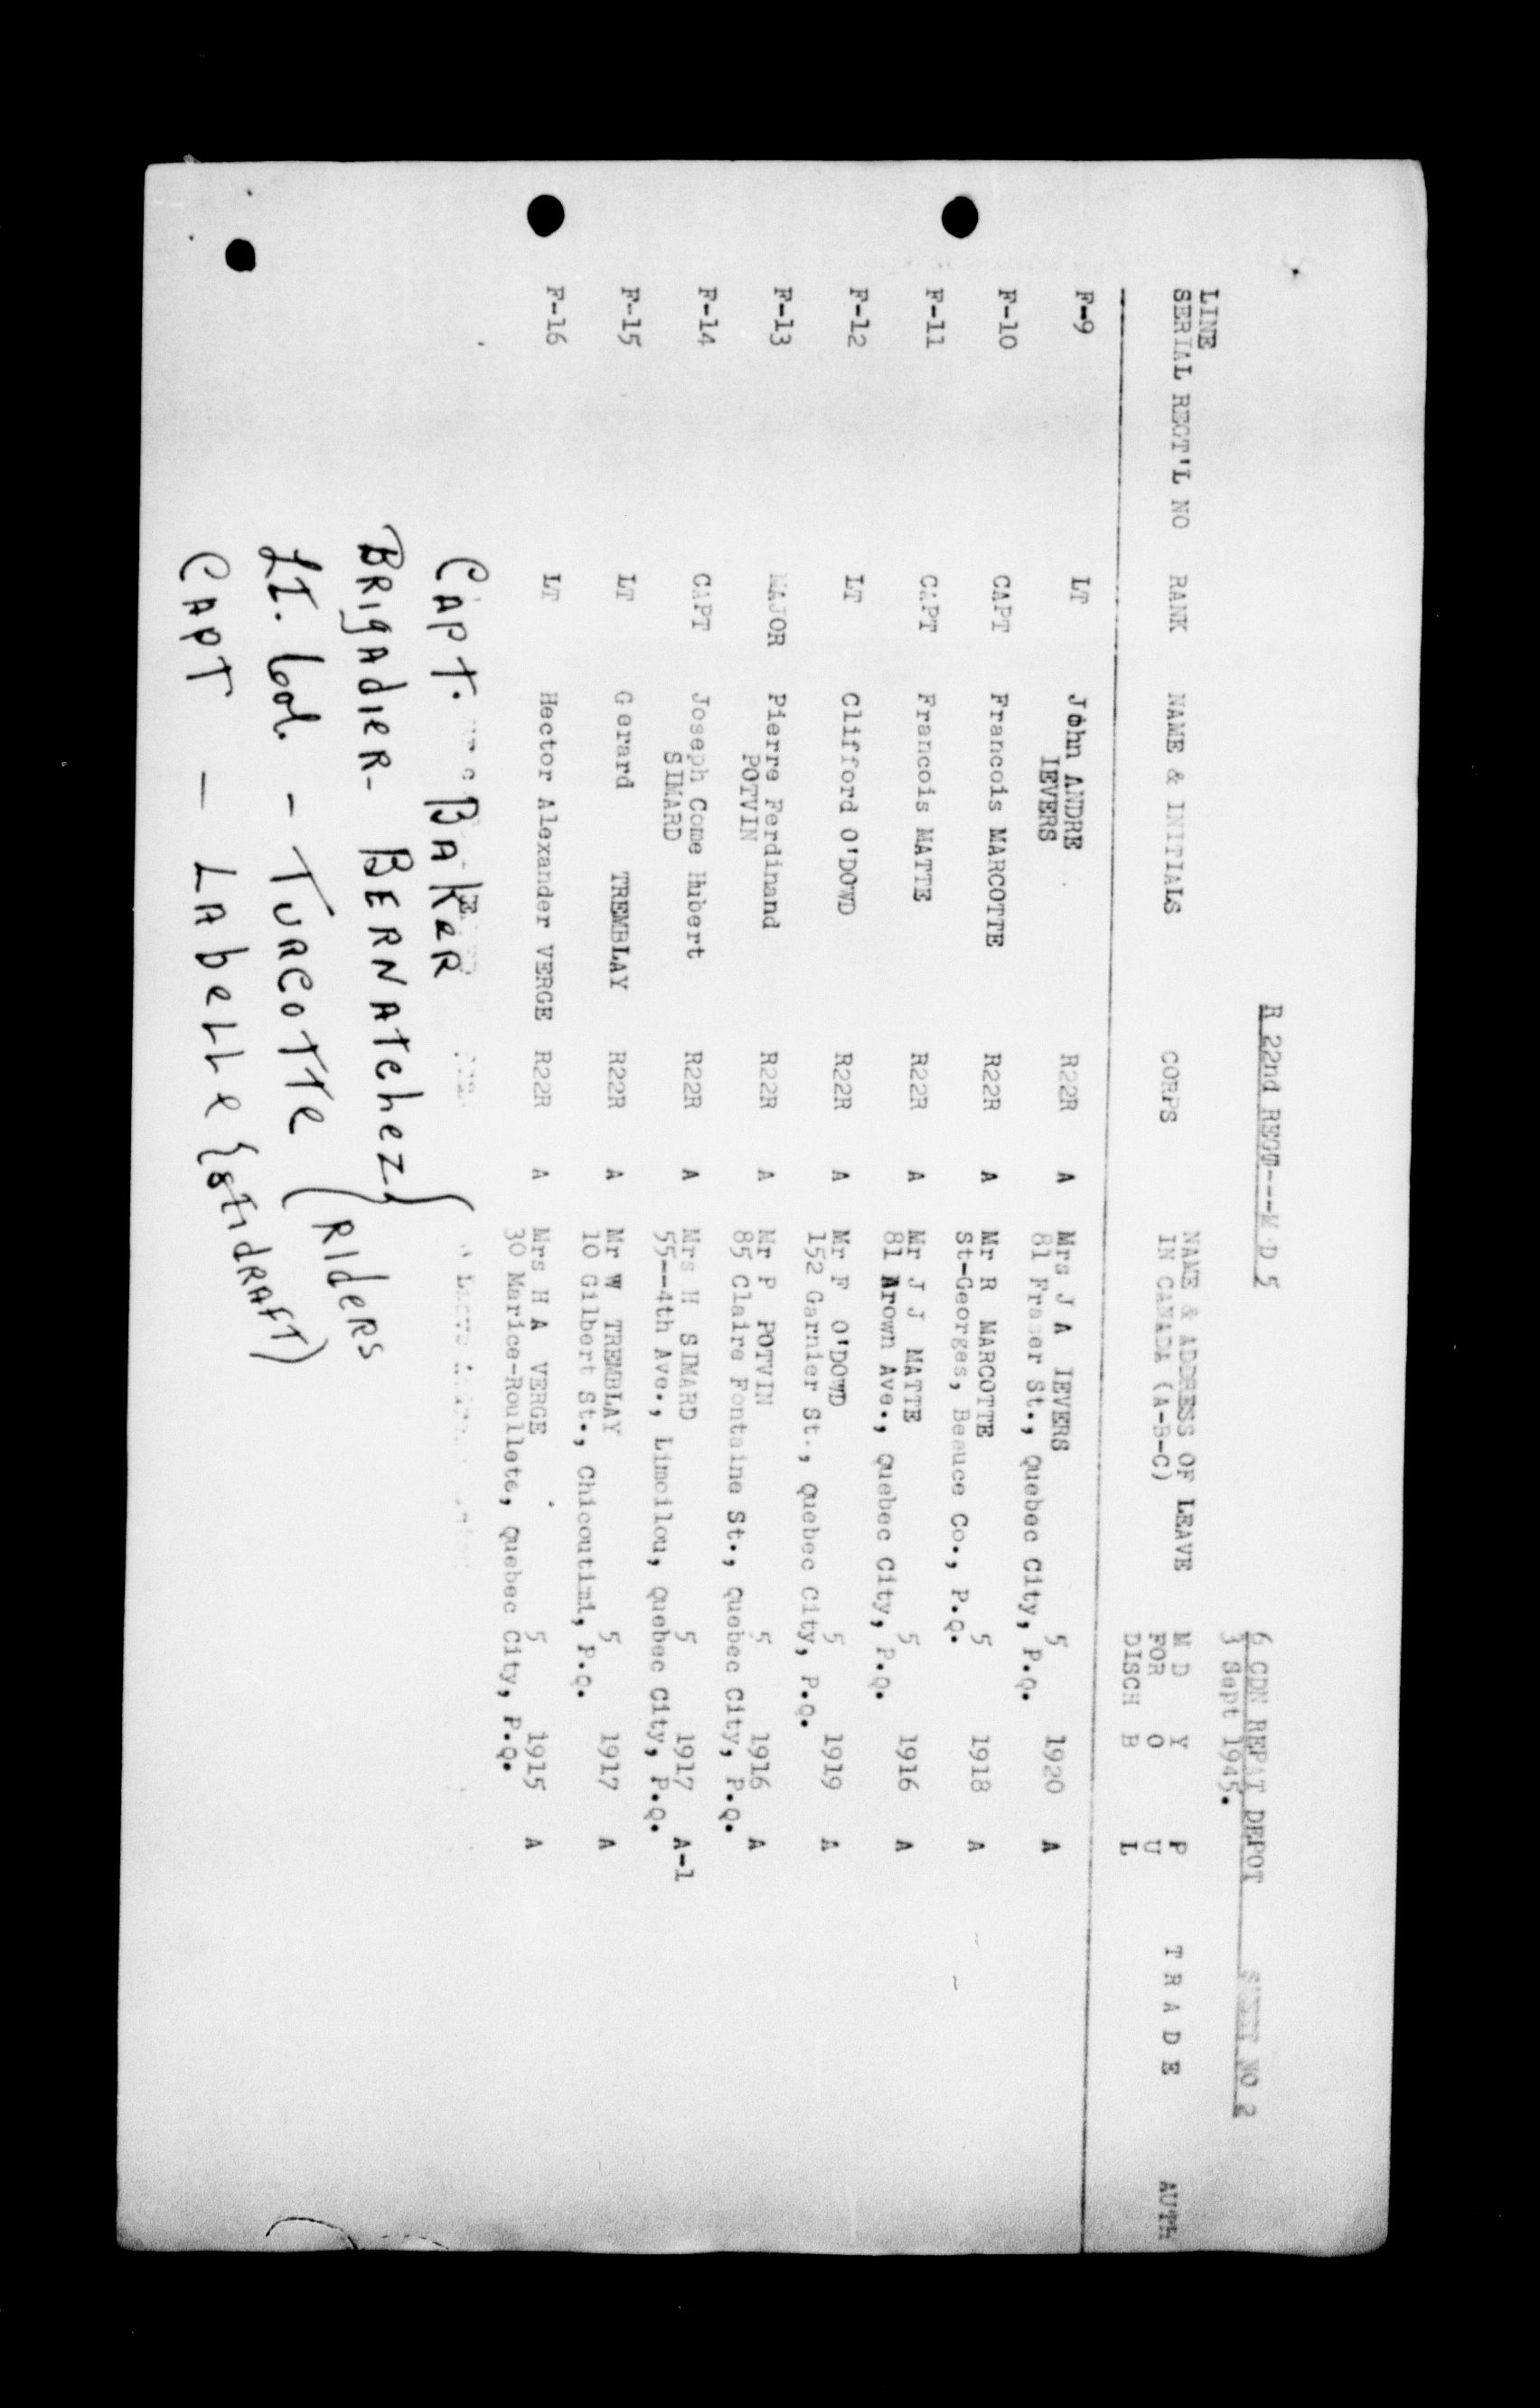 R 22nd REGT---M D 5
6 CDN REPAT DEPOT SHEET NO 2
3 Sept 1945.
LINE
SERIAL REGT'L NO RANK NAME & INITIALS CORPS NAME & ADDRESS OF LEAVE M D Y P T R A D E AUTH
IN CANADA (A-B-C) FOR O U
DISCH B L
F-9 LT John ANDRE R22R A Mrs J A IEVERS 5 1920 A
IEVERS 81 Fraser St., Quebec City, P.Q.
F-10 CAPT Francois MARCOTTE R22R A Mr R MARCOTTE 5 1918 A
St-Georges, Beauce Co., P.Q.
F-11 CAPT Francois MATTE R22R A Mr J J MATTE 5 1916 A
81 Arown Ave., Quebec City, P.Q.
F-12 LT Clifford O'DOWD R22R A Mr F O'DOWD 5 1919 A
152 Garnier St., Quebec City, P.Q.
F-13 MAJOR Pierre Ferdinand R22R A Mr P POTVIN 5 1916 A
POTVIN 85 Claire Fontaine St., Quebec City, P.Q.
F-14 CAPT Joseph Come Hubert R22R A Mrs H SIMARD 5 1917 A-1
SIMARD 55--4th Ave., Limoilou, Quebec City, P.Q.
F-15 LT G erard TREMBLAY R22R A Mr W TREMBLAY 5 1917 A
10 Gilbert St., Chicoutimi, P.Q.
F-16 LT Hector Alexander VERGE R22R A Mrs H A VERGE 5 1915 A
30 Marice-Roullete, Quebec City, P.Q.
CAPT. BAKER
BRIGADIER- BERNATCHEZ
RIDERS
LT. Col. - TURCOTTE
CAPT — LABELLE (DRAFT)